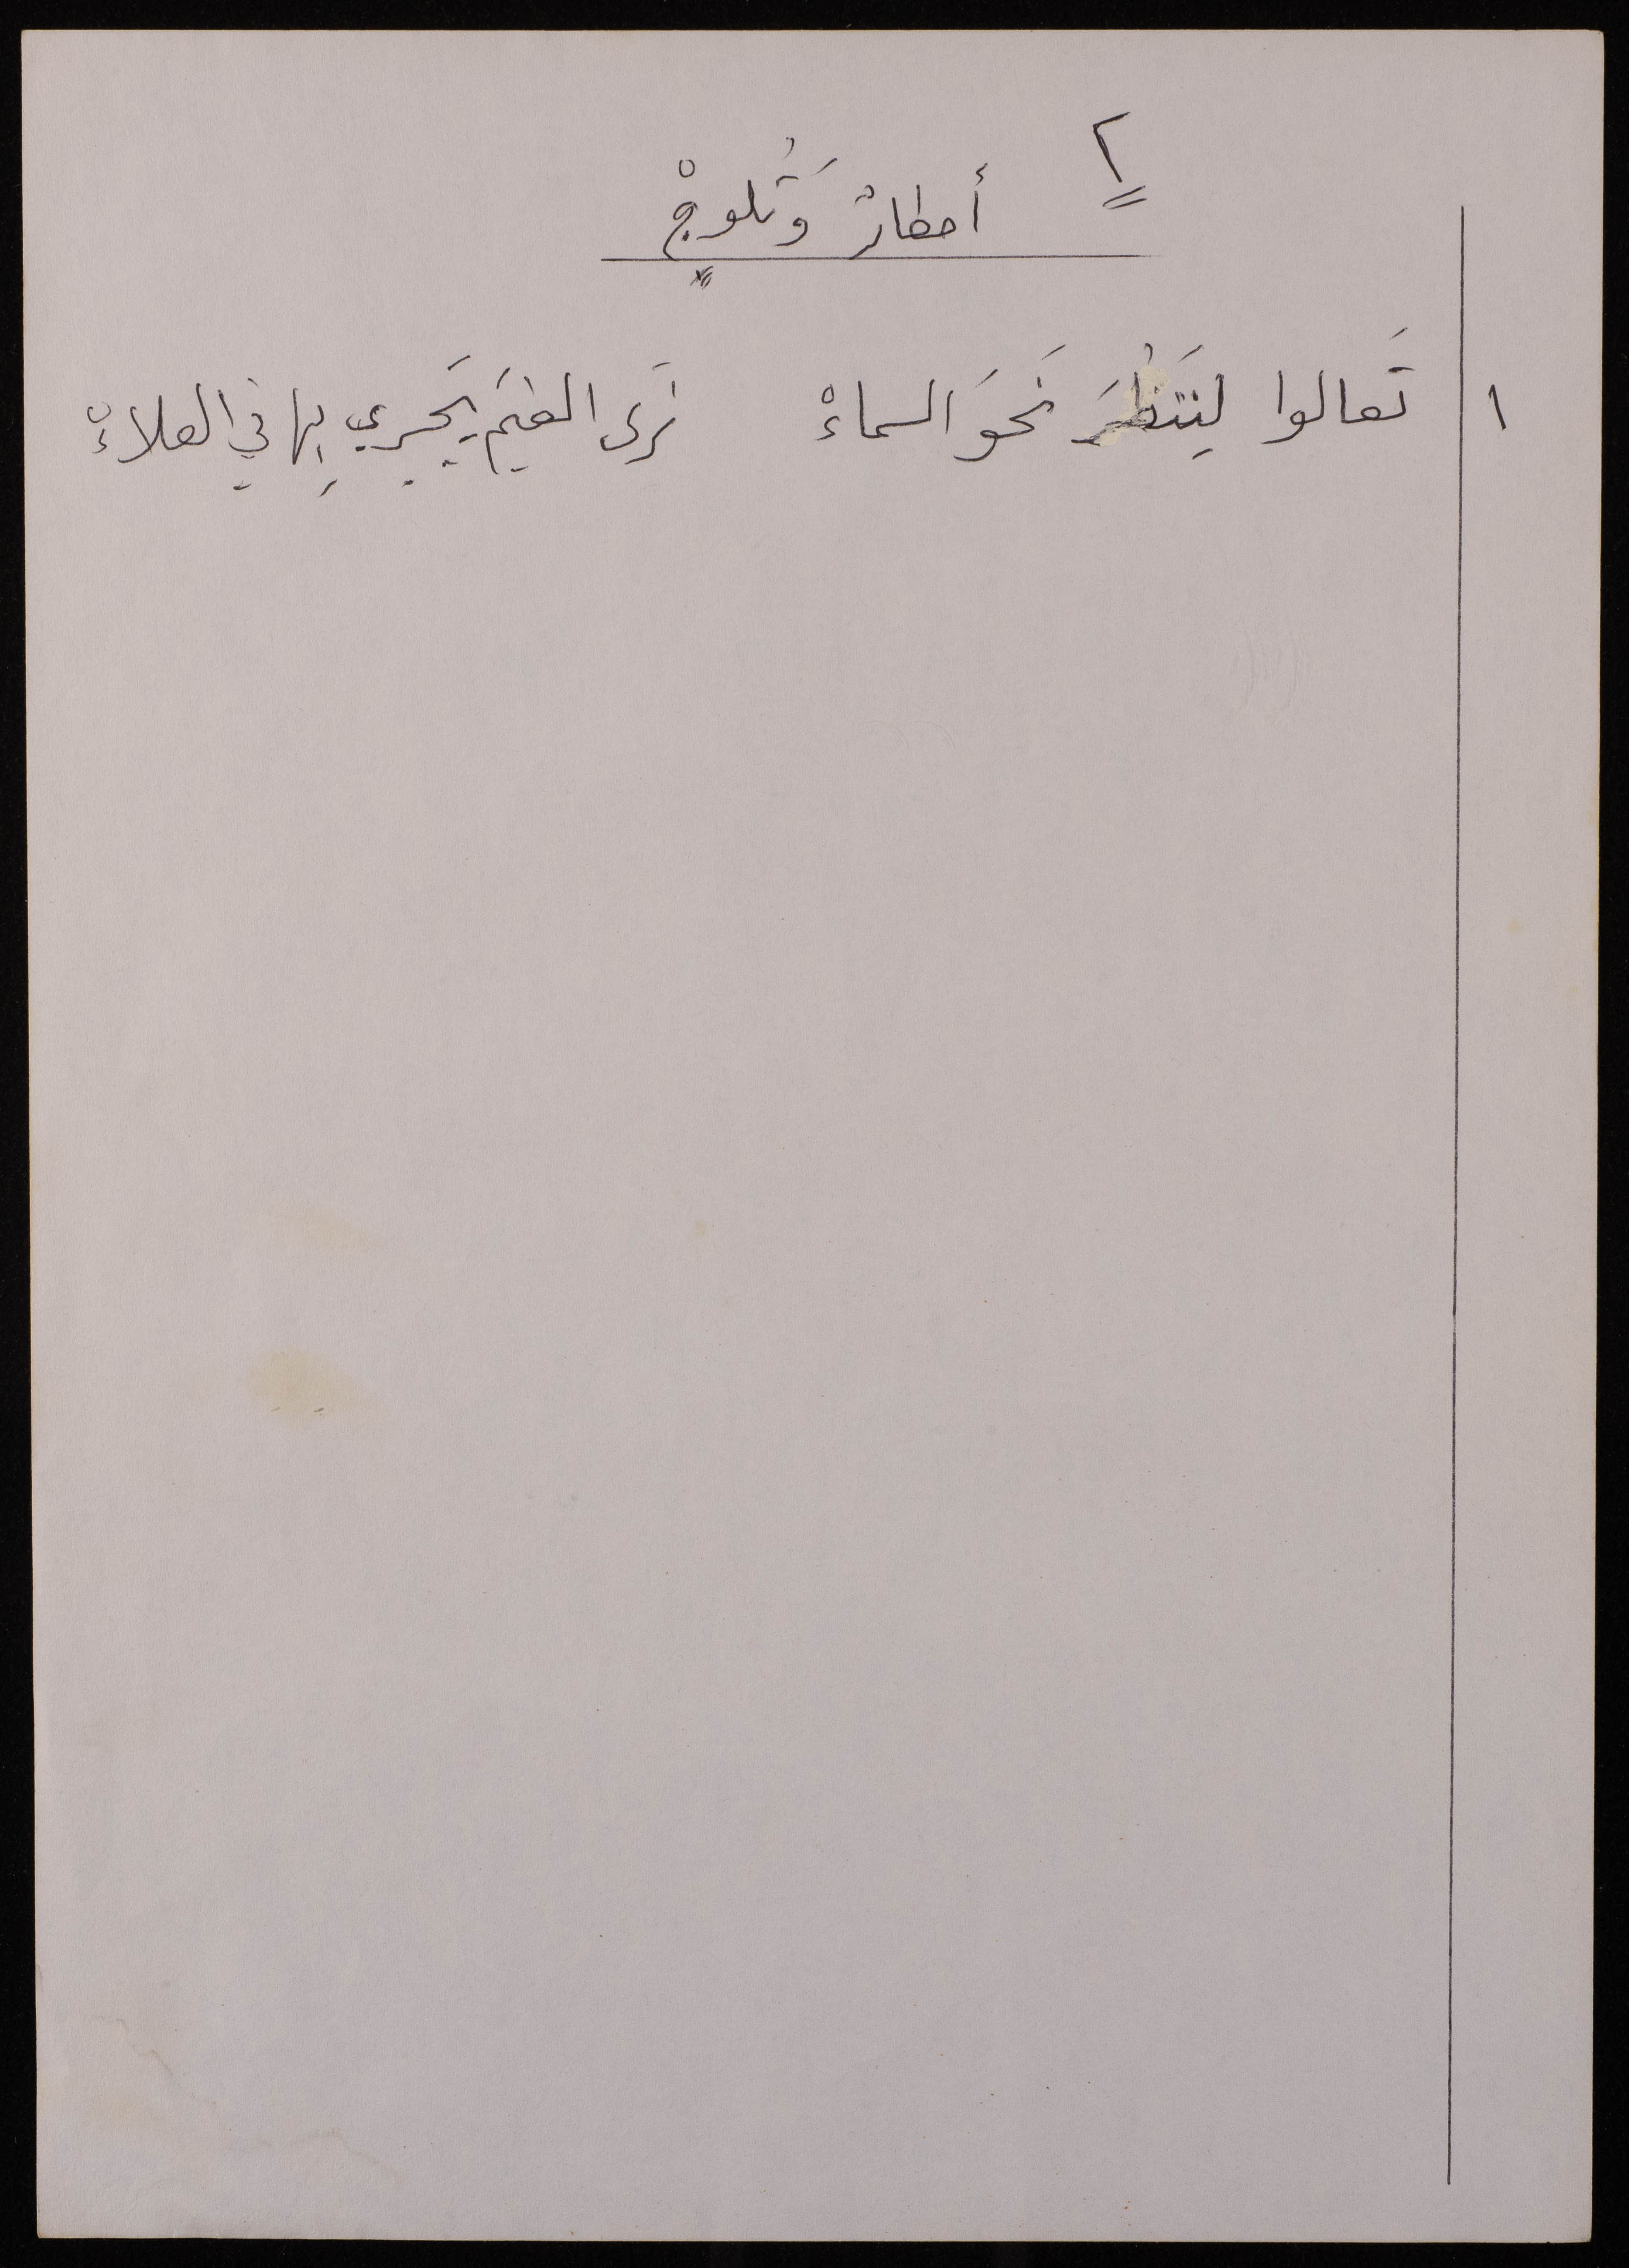 ٢
أمطارْ وَثُلوجْ
١ تَعالوا لِنَنظُرَ نَحوَ السماءْ نَرى الغيَم يَجري بِها في العلاءْ